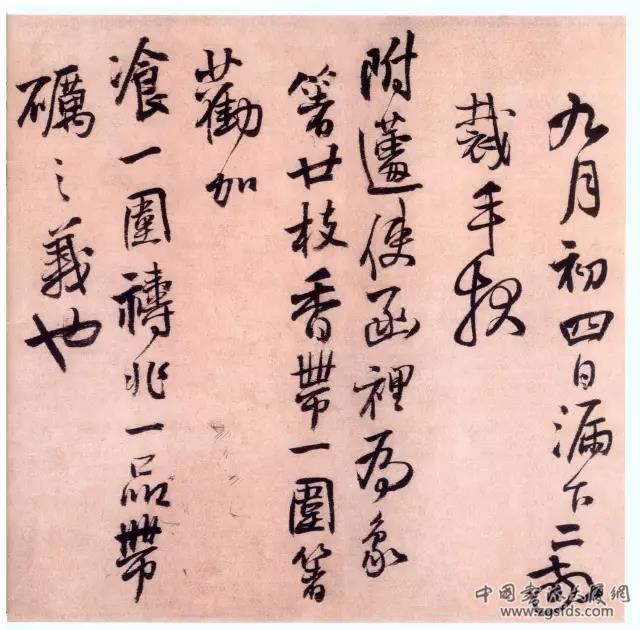 九月初四日漏下二
裁手
附使函裡為象
箸廿枝香帶一圍箸
勸加
飡一圍禱兆一品帶
礪之義也
中國書法大厦網
www.zgsfds.com